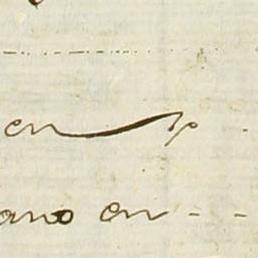 en
ano en - -